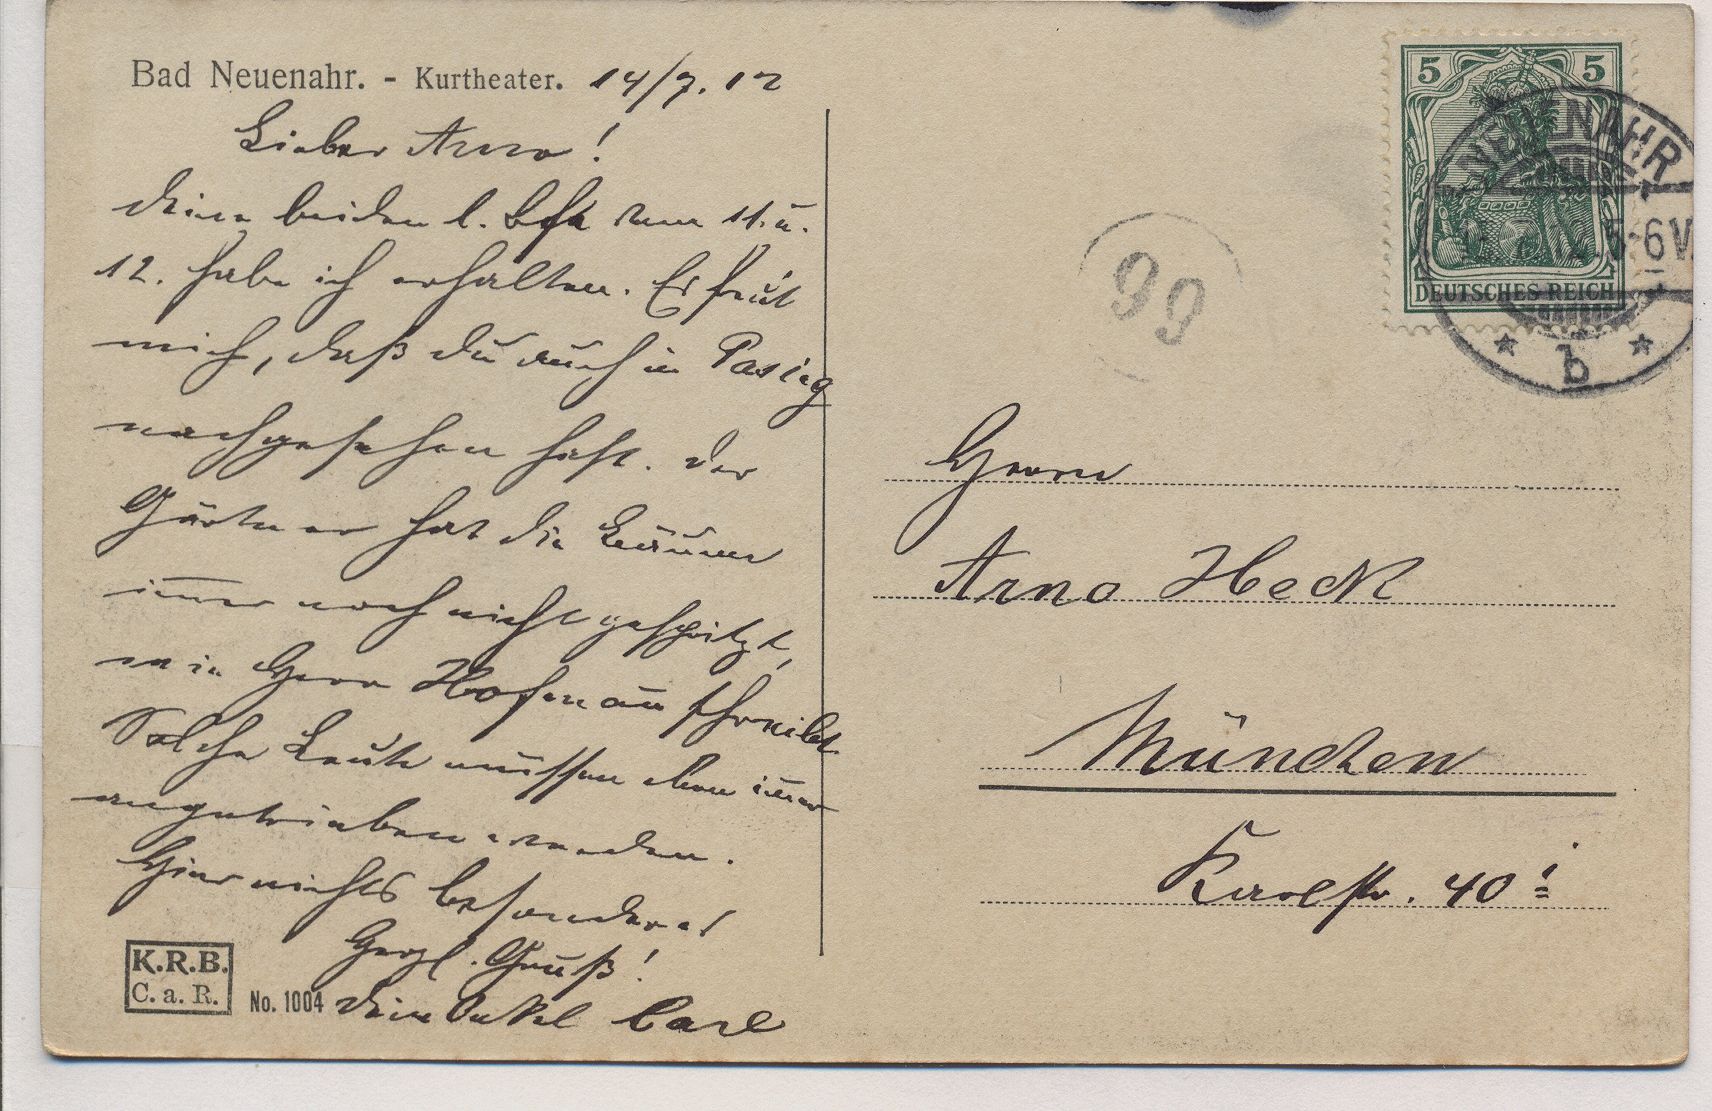 Bad Neuenahr. - Kurtheater. 14/7. 12
Lieber Arno!
Deine beiden l. Bfk vom 11. u.
12. habe ich erhalten. Es freut
mich, daß Du auch in Pasing
nachgesehen hast. Der
Gärtner hat die Bäume
immer noch nicht gespritzt,
wie Herr Hofenau schreibt
Solche Leute müssen eben immer
angetrieben werden.
Hier nichts besonderes
Herzl. Gruß!
Dein Onkel Carl
K.R.B.
C. a. R.
No. 1004
5 5
DEUTSCHES REICH
NEUENAHR
5-6V.
* b *
99
Herrn
Arno Heck
München
Karlstr. 40 I